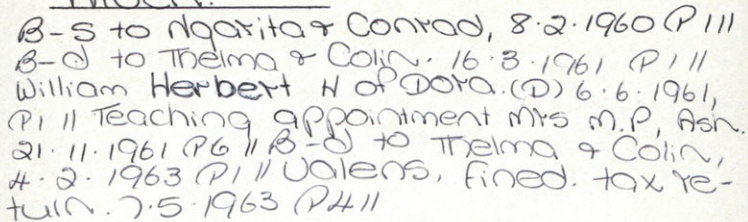 B-S to Ngarita & Conrad, 8.2.1960 (P 111
B-d to Thelma & Colin. 16.3.1961 P 1 //
William Herbert H of Dora. (D) 6.6.1961,
(P1 // Teaching appointment Mrs M.P, Ash.
21.11.1961 P6 // B-d to Thelma & Colin,
4.2.1963 (P1 // Valens, fined. tax re-
turn. 7.5.1963 (P4 //